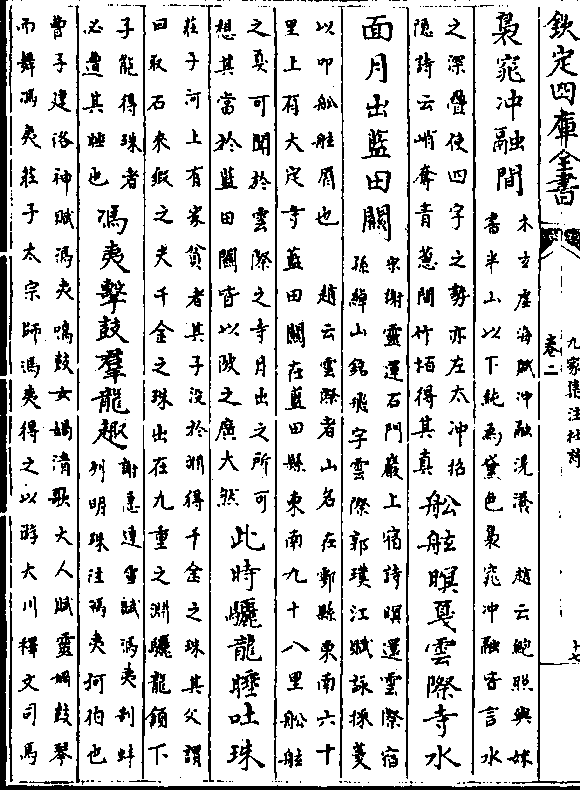 欽定四庫全書
九家集注杜詩
卷二
十七
裊窕冲融間
木玄虛海賦冲融滉瀁 趙云鮑照與妹
書半山以下純為黛色裊窕冲融皆言水
之深疊使四字之勢亦左太冲招
隱詩云峭蒨青葱間竹栢得其真
船舷暝戛雲際寺水
面月出藍田關
宋謝靈運石門巖上宿詩暝還雲際宿
孫綽山銘飛宇雲際郭璞江賦詠採菱
以叩舷舷脣也 趙云雲際者山名在鄠縣東南六十
里上有大定寺藍田關在藍田縣東南九十八里船舷
之戛可聞於雲際之寺月出之所可
想其當於藍田關皆以陂之廣大然
此時驪龍睡吐珠
莊子河上有家貧者其子没於淵得千金之珠其父謂
曰取石來鍛之夫千金之珠出在九重之淵驪龍頷下
子能得珠者
必遭其睡也
馮夷擊鼓羣龍趣
謝惠連雪賦馮夷剖蚌
列明珠注馮夷河伯也
曹子建洛神賦馮夷鳴鼓女媧清歌大人賦靈媧鼓琴
而舞馮夷莊子太宗師馮夷得之以游大川釋文司馬